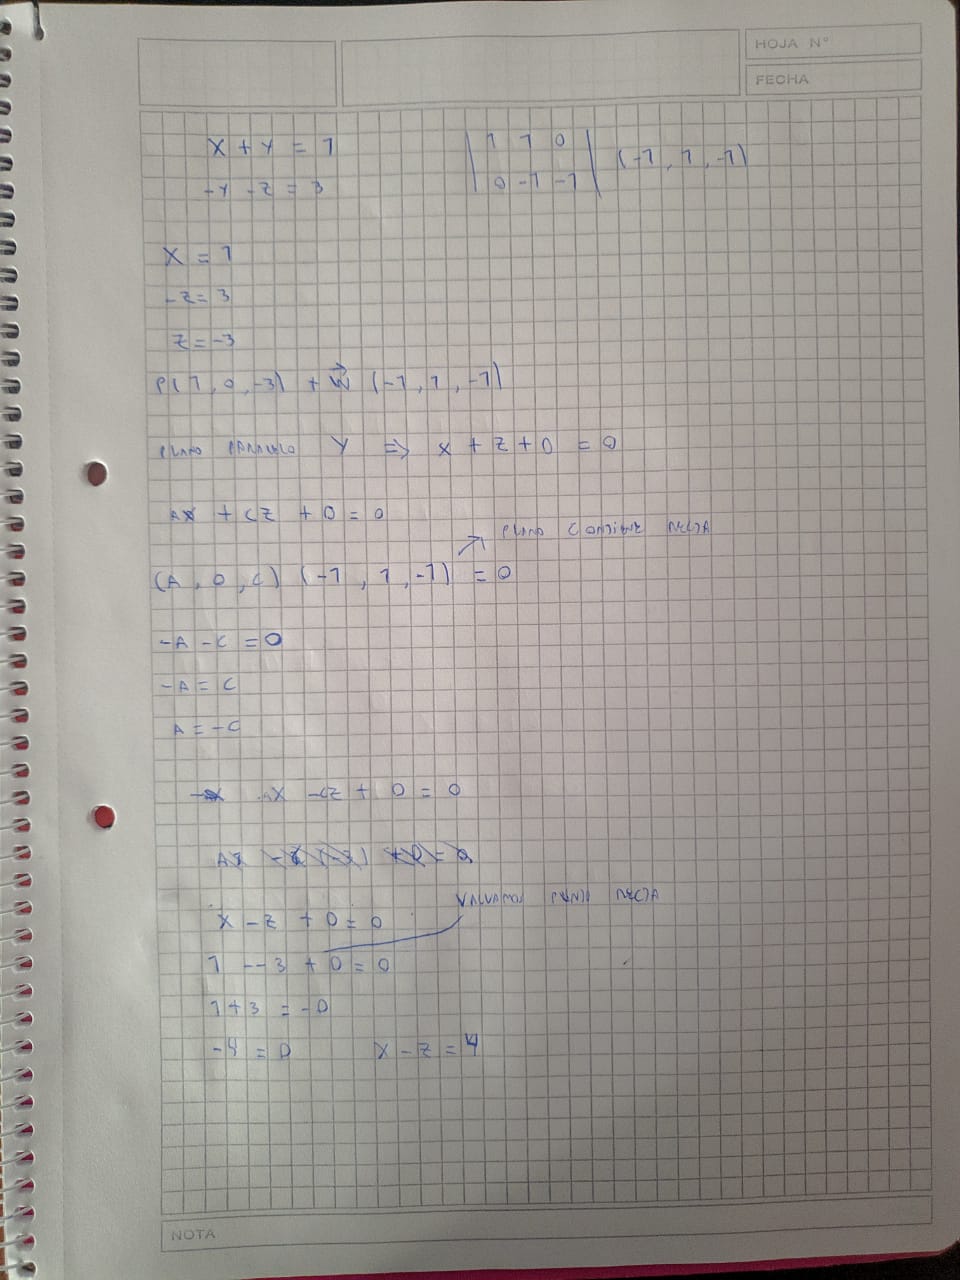 HOJA N°
FECHA
x + y = 1
| 1 1 0 | (-1, 1, -1)
-y -z = 3
| 0 -1 -1 |
x = 1
-z = 3
z = -3
P(1, 0, -3) + w⃗ (-1, 1, -1)
PLANO PARALELO Y => x + z + D = 0
Ax + Cz + D = 0
PLANO CONTIENE RECTA
(A, 0, C) (-1, 1, -1) = 0
-A - C = 0
-A = C
A = -C
Ax -Cz + D = 0
VALUAMOS PUNTO RECTA
x - z + D = 0
1 - -3 + D = 0
1+3 = -D
-4 = D x - z = 4
NOTA